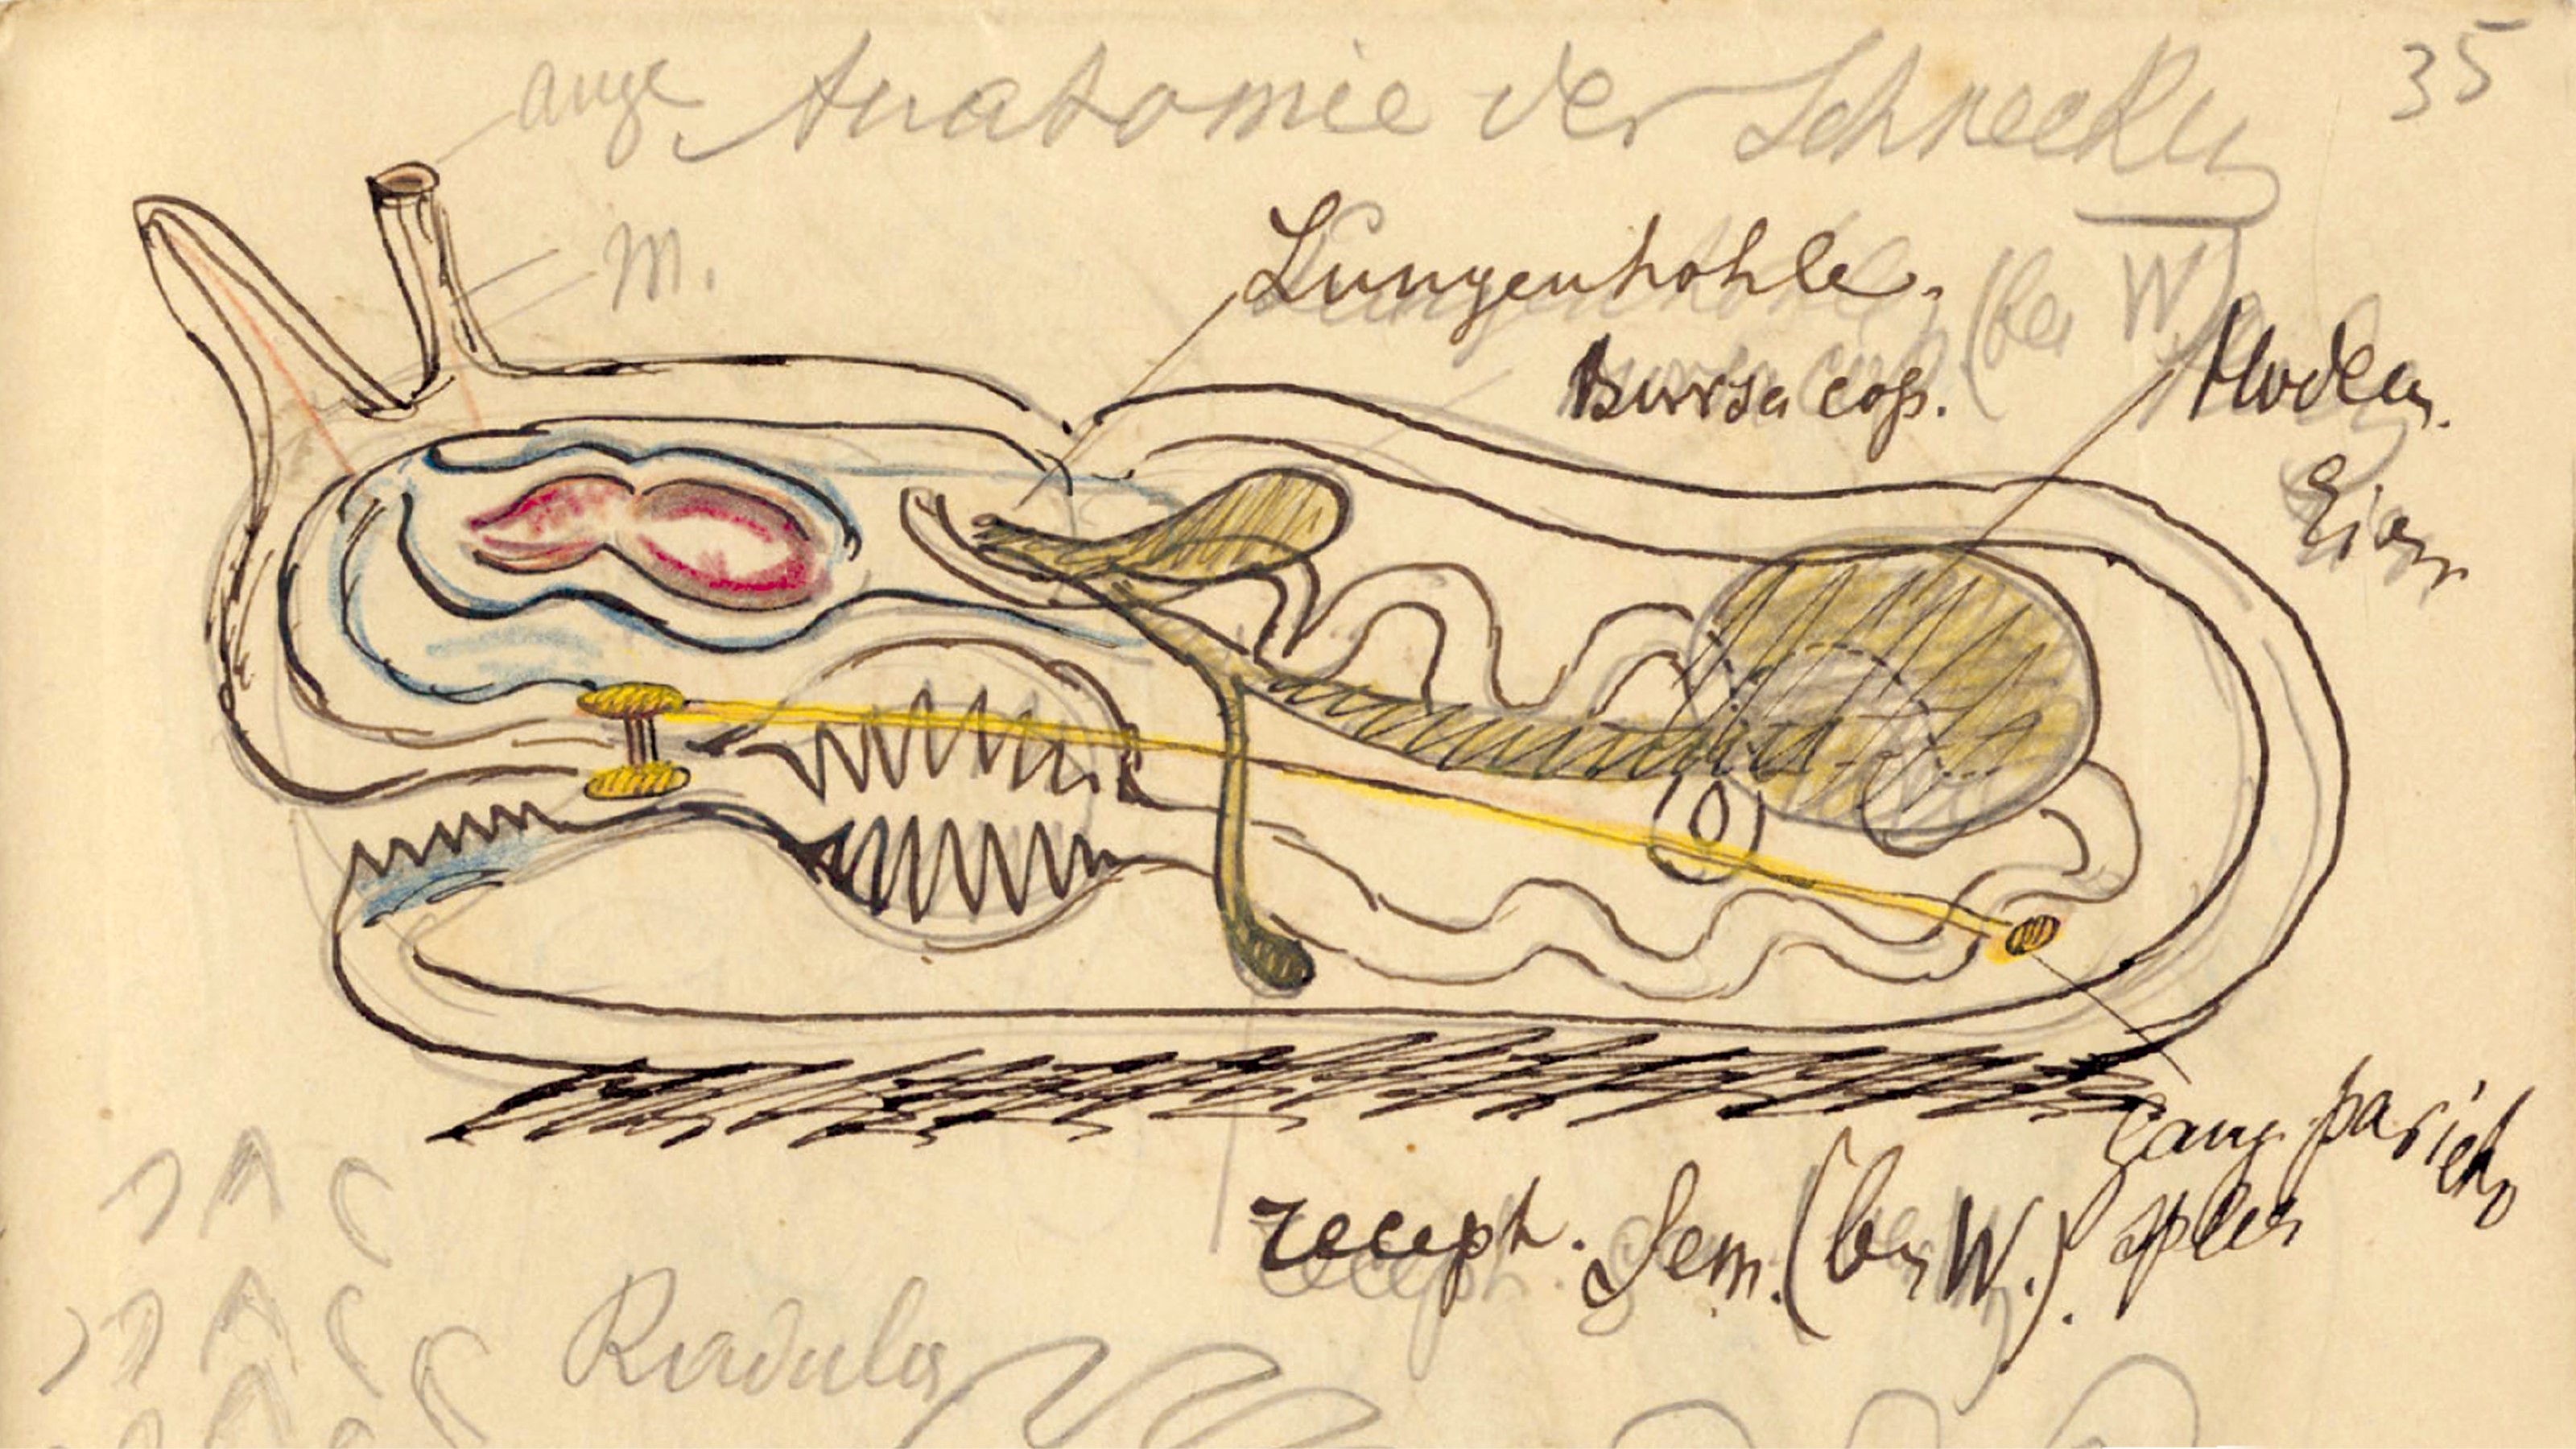 35
auge Anatomie der Schnecken
M.
Lungenhohle.
(bei W)
Bursa cop.
Hoden.
Eier
gang. parieto
splen
recept. Sem. (bei W.).
Radula